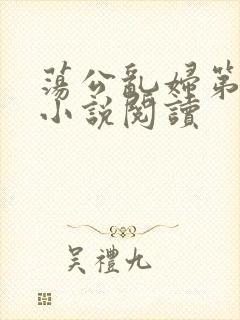 蕩公亂婦第
小說閱讀
吴禮九